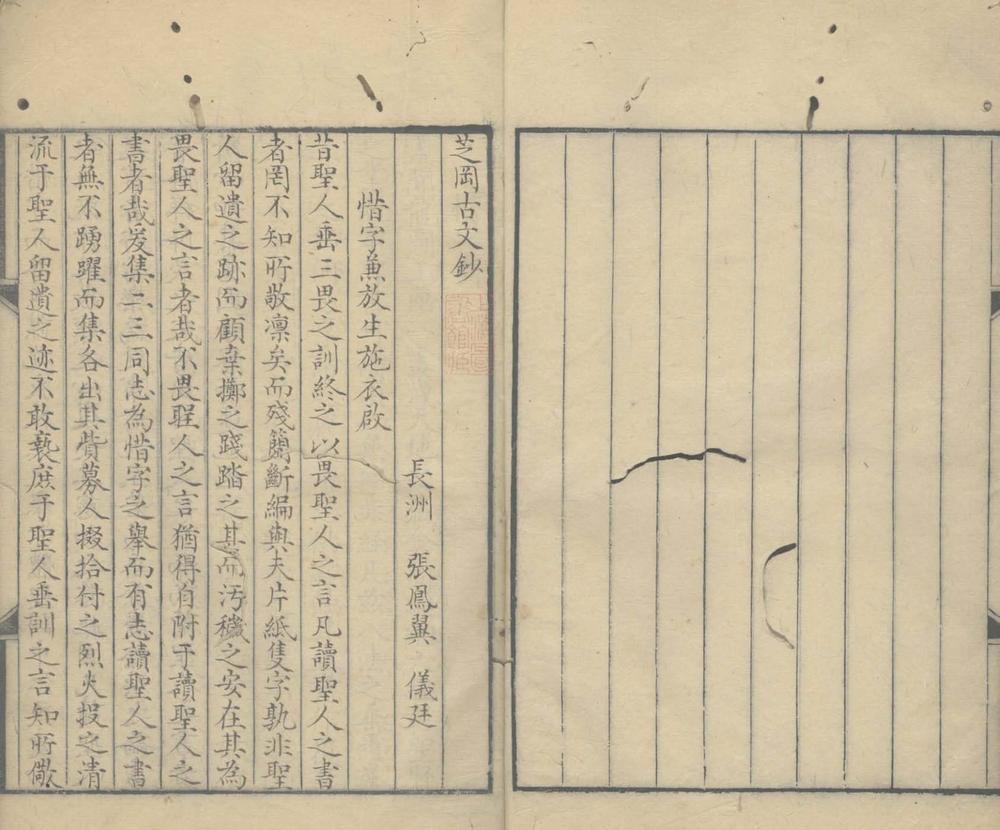 芝岡古文鈔
惜字兼放生施衣啟
長洲 張鳳翼 儀廷
昔聖人垂三畏之訓終之以畏聖人之言凡讀聖人之書
者罔不知所敬凛矣而殘簡斷編與夫片紙隻字孰非聖
人留遺之跡而顧棄擲之踐踏之甚而汚穢之安在其為
畏聖人之言者哉不畏聖人之言猶得自附于讀聖人之
書者哉爰集二三同志為惜字之舉而有志讀聖人之書
者無不踴躍而集各出其貲募人掇拾付之烈火投之清
流于聖人留遺之迹不敢褻庶于聖人垂訓之言知所儆